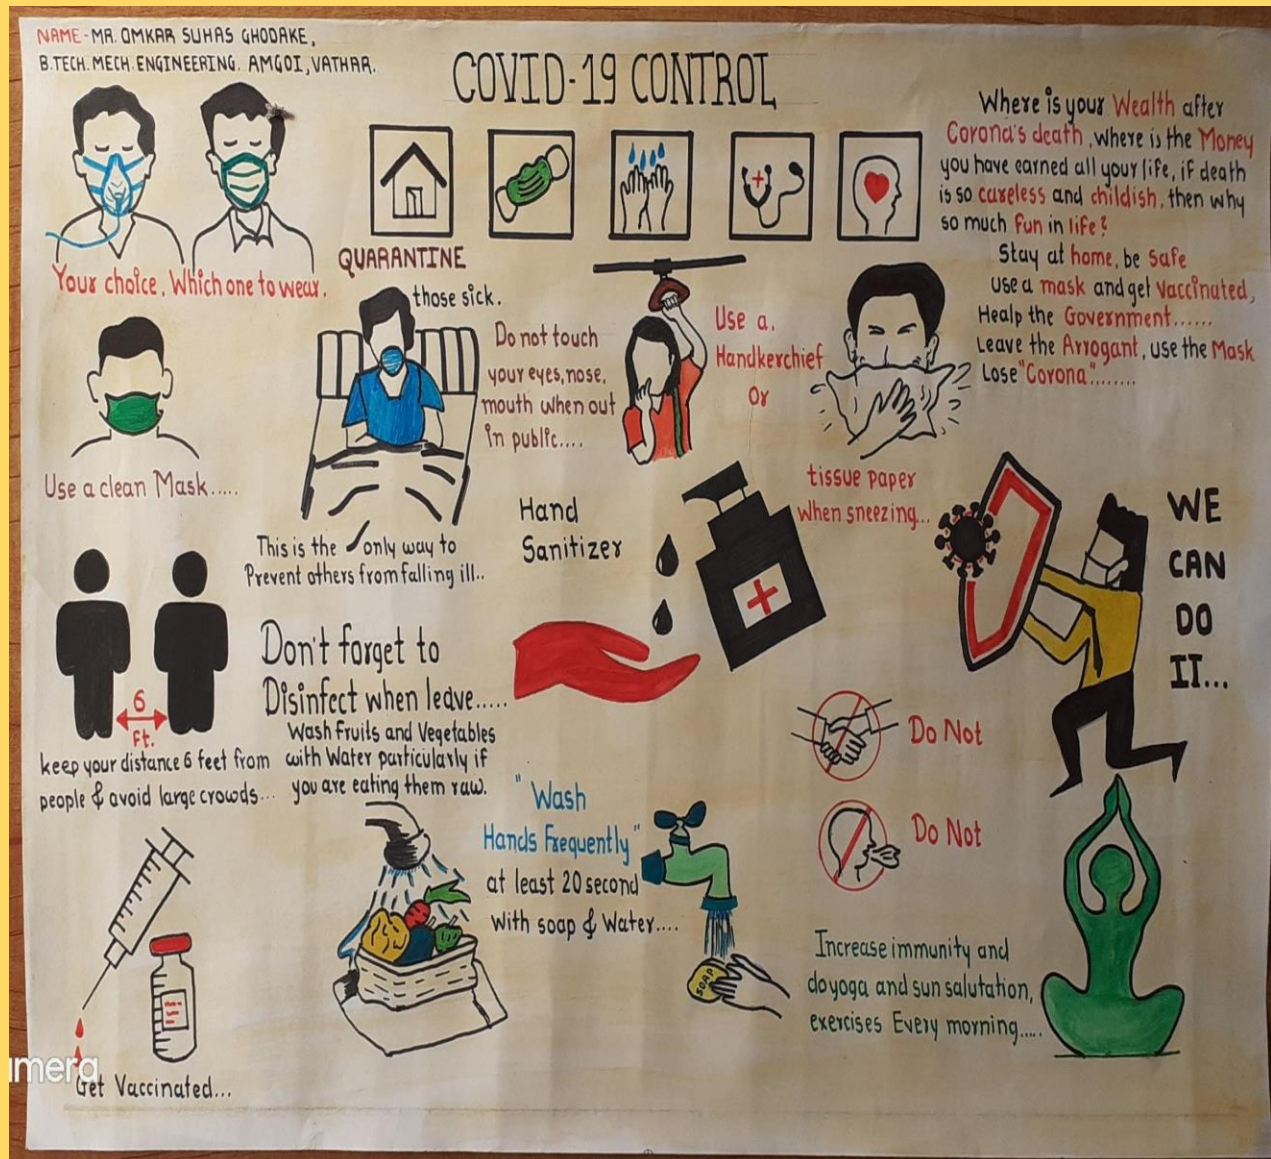 NAME- MR. OMKAR SUHAS GHODAKE,
B.TECH. MECH. ENGINEERING. AMGOI, VATHAR.
COVID-19 CONTROL
Where is your Wealth after
Corona's death, where is the Money
you have earned all your life, if death
is so careless and childish, then why
so much fun in life?
Stay at home, be safe
use a mask and get vaccinated,
Healp the Government......
Leave the Arrogant, use the Mask
Lose "Corona"........
Your choice. Which one to wear.
QUARANTINE
those sick.
Do not touch
your eyes, nose,
mouth when out
in public....
Use a.
Handkerchief
Or
tissue paper
when sneezing...
Use a clean Mask.....
This is the only way to
Prevent others from falling ill..
Hand
Sanitizer
WE
CAN
DO
IT...
6
Ft.
keep your distance 6 feet from
people & avoid large crowds...
Don't forget to
Disinfect when leave.....
Wash Fruits and Vegetables
with Water particularly if
you are eating them raw.
"Wash
Hands Frequently"
at least 20 second
With soap & Water....
SOAP
Do Not
Do Not
Increase immunity and
do yoga and sun salutation,
exercises Every morning.....
Get Vaccinated...
amera